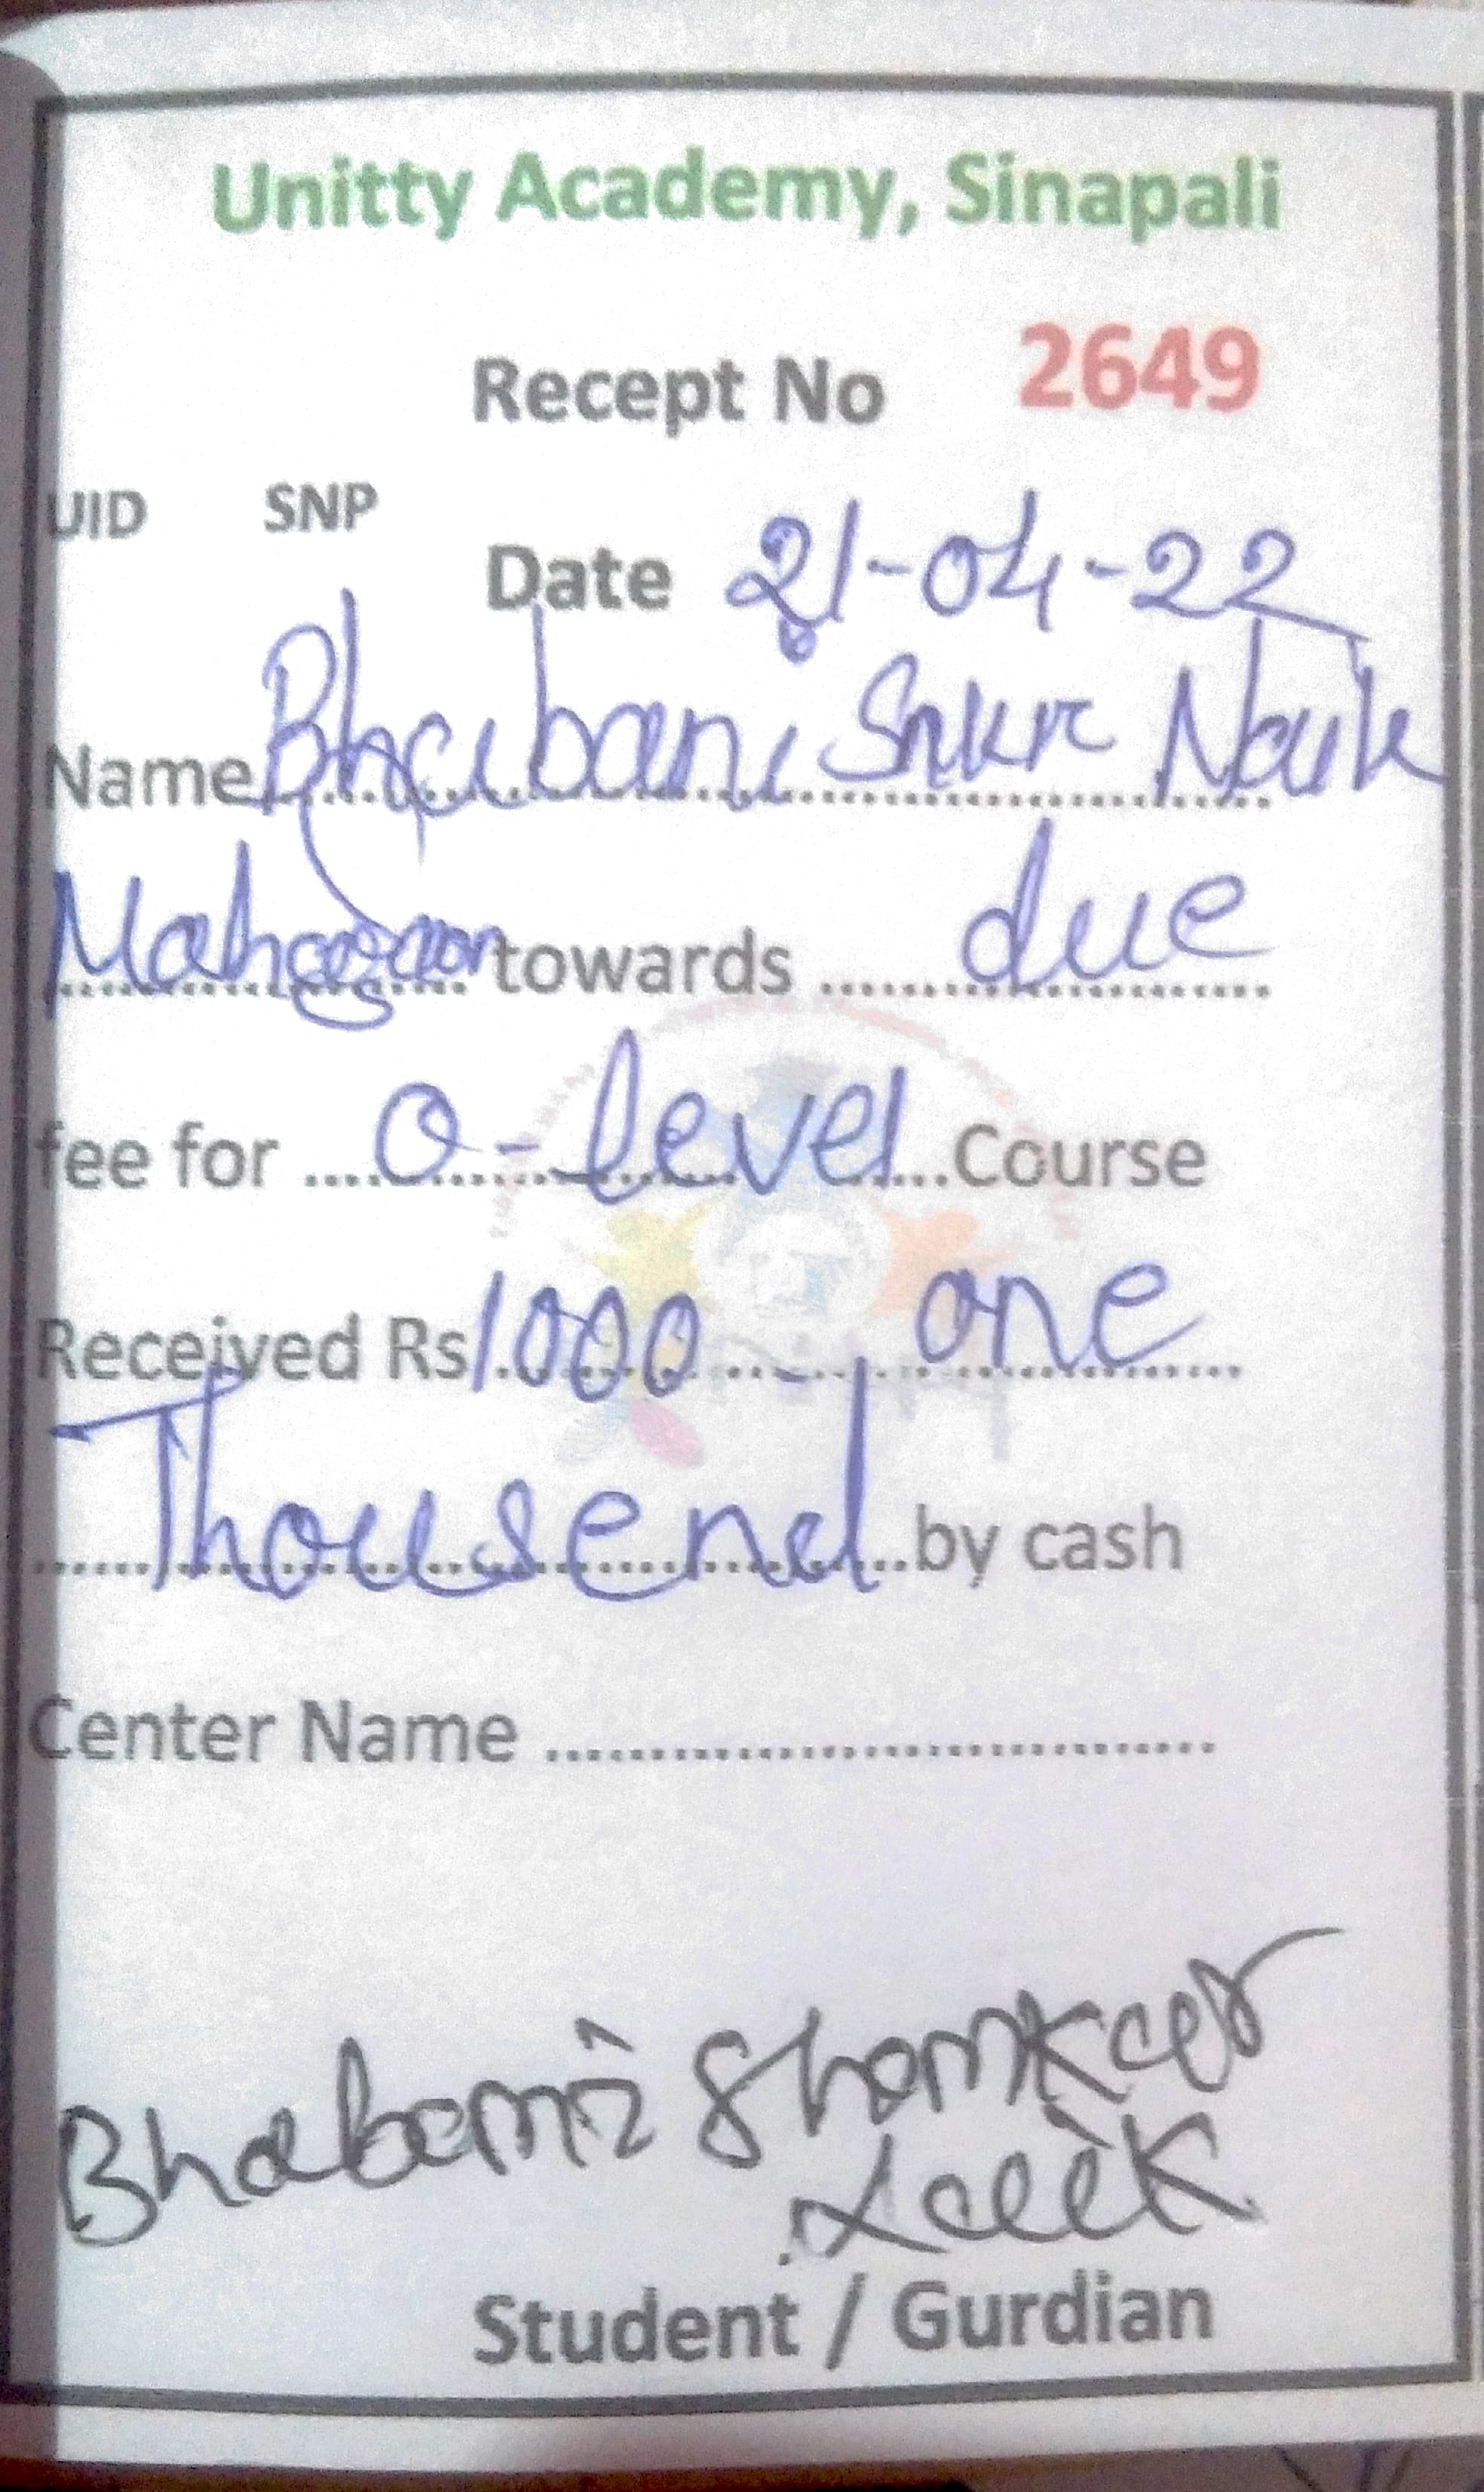 Unitty Academy, Sinapali
Recept No 2649
UID SNP
Date 21-04-22
Name Bhabani Snkr Naik
towards due
fee for O-level Course
Received Rs 1000 - one
Thousend by cash
Center Name
Bhabani Shankar
Student / Gurdian